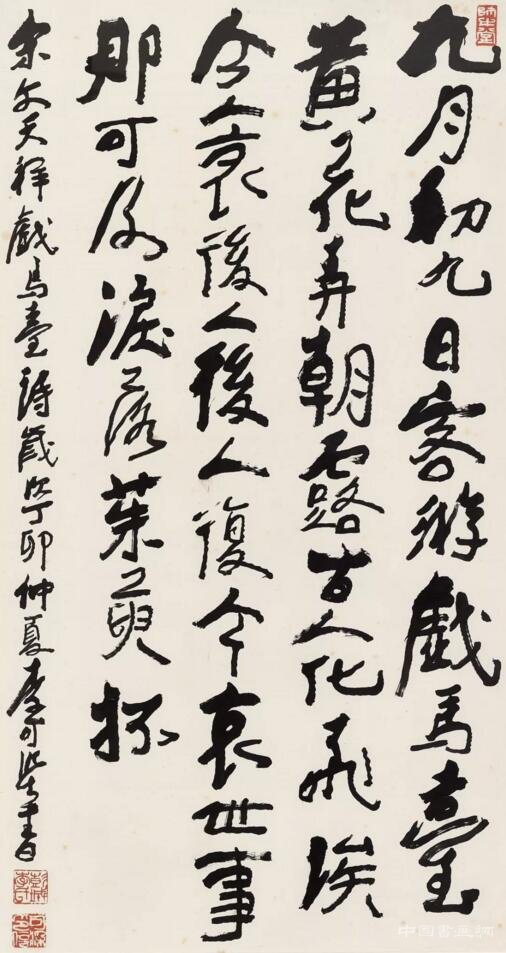 師牛堂
九月初九日客游戲馬臺
黃花弄朝露古人化飛埃
今人哀後人後人復今哀世事
那可及淚落茱萸杯
宋文天祥戲馬臺詩歲次丁卯仲夏李可染書
中国书画网